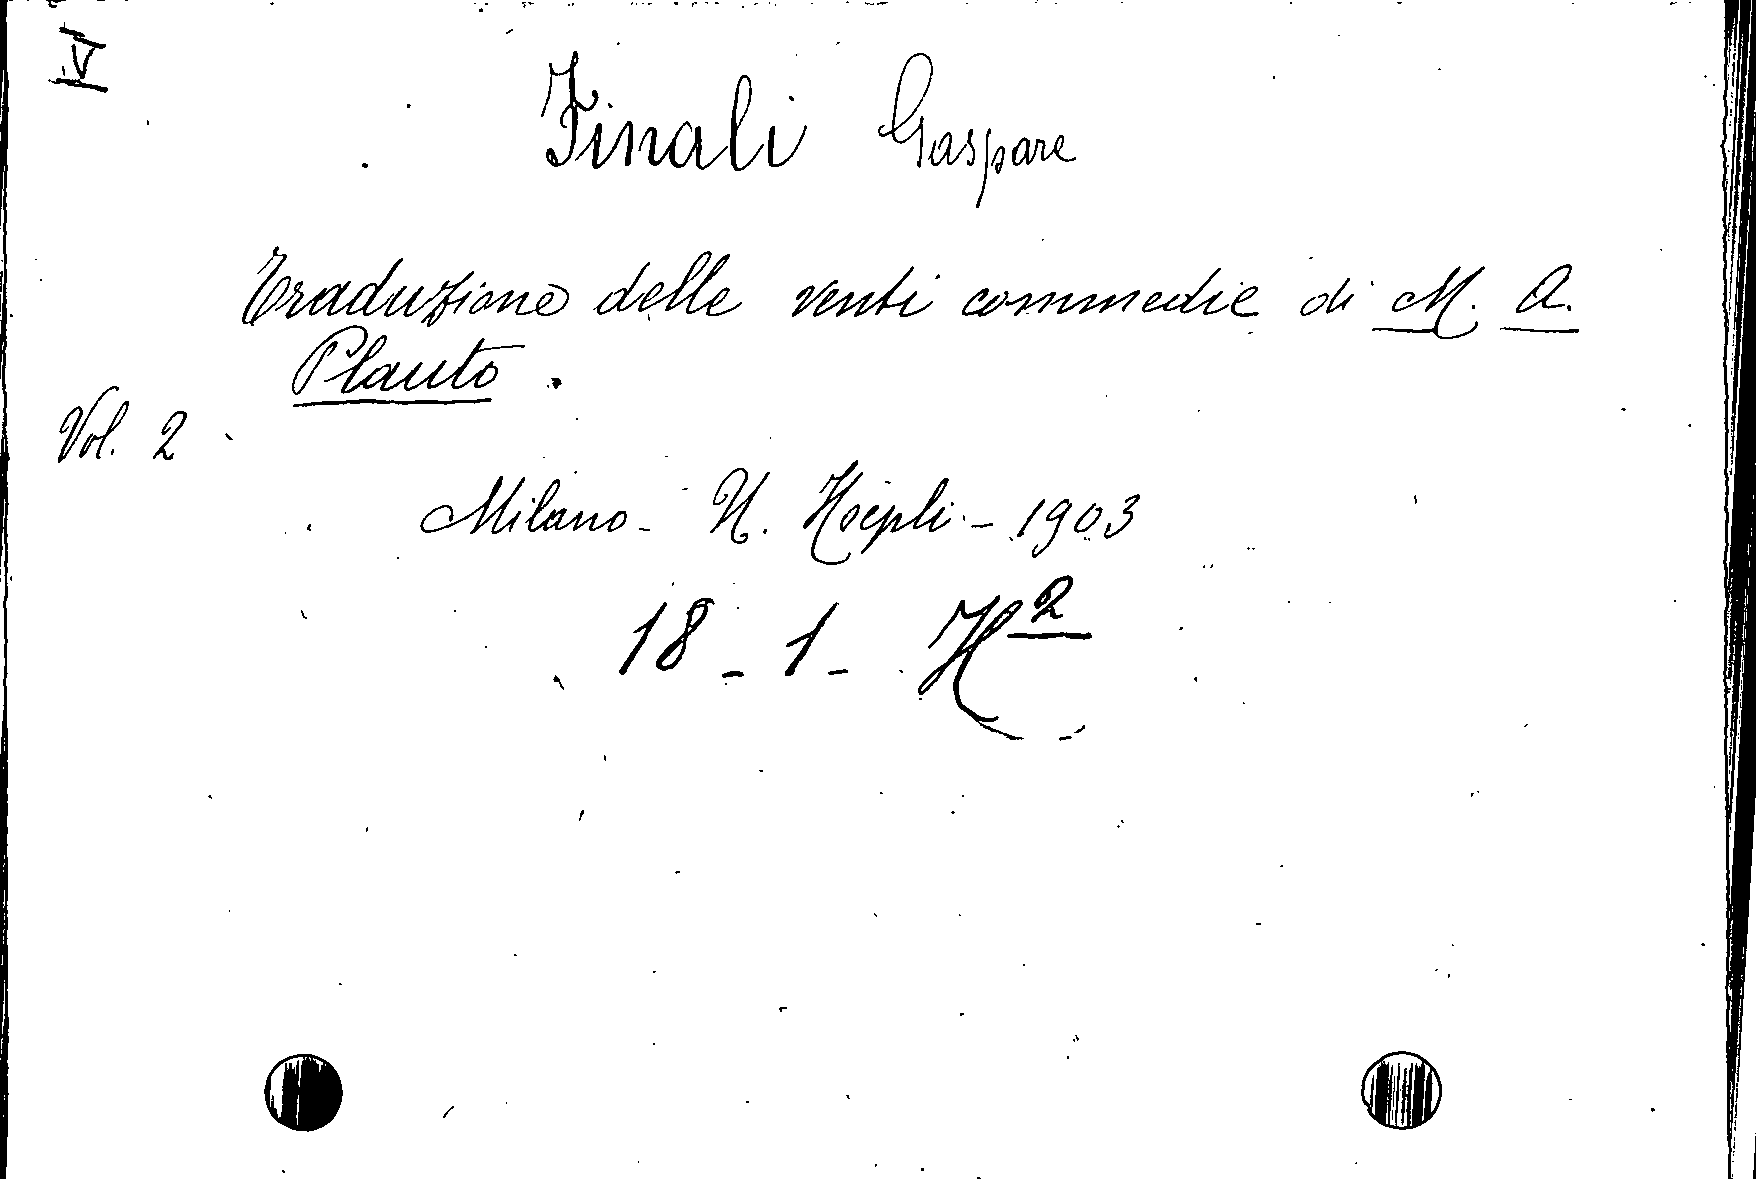 IV
Finali Gaspare
Traduzione delle venti commedie di M. A.
Plauto.
Vol. 2
Milano - U. Hoepli - 1903
18 - 1 - H²